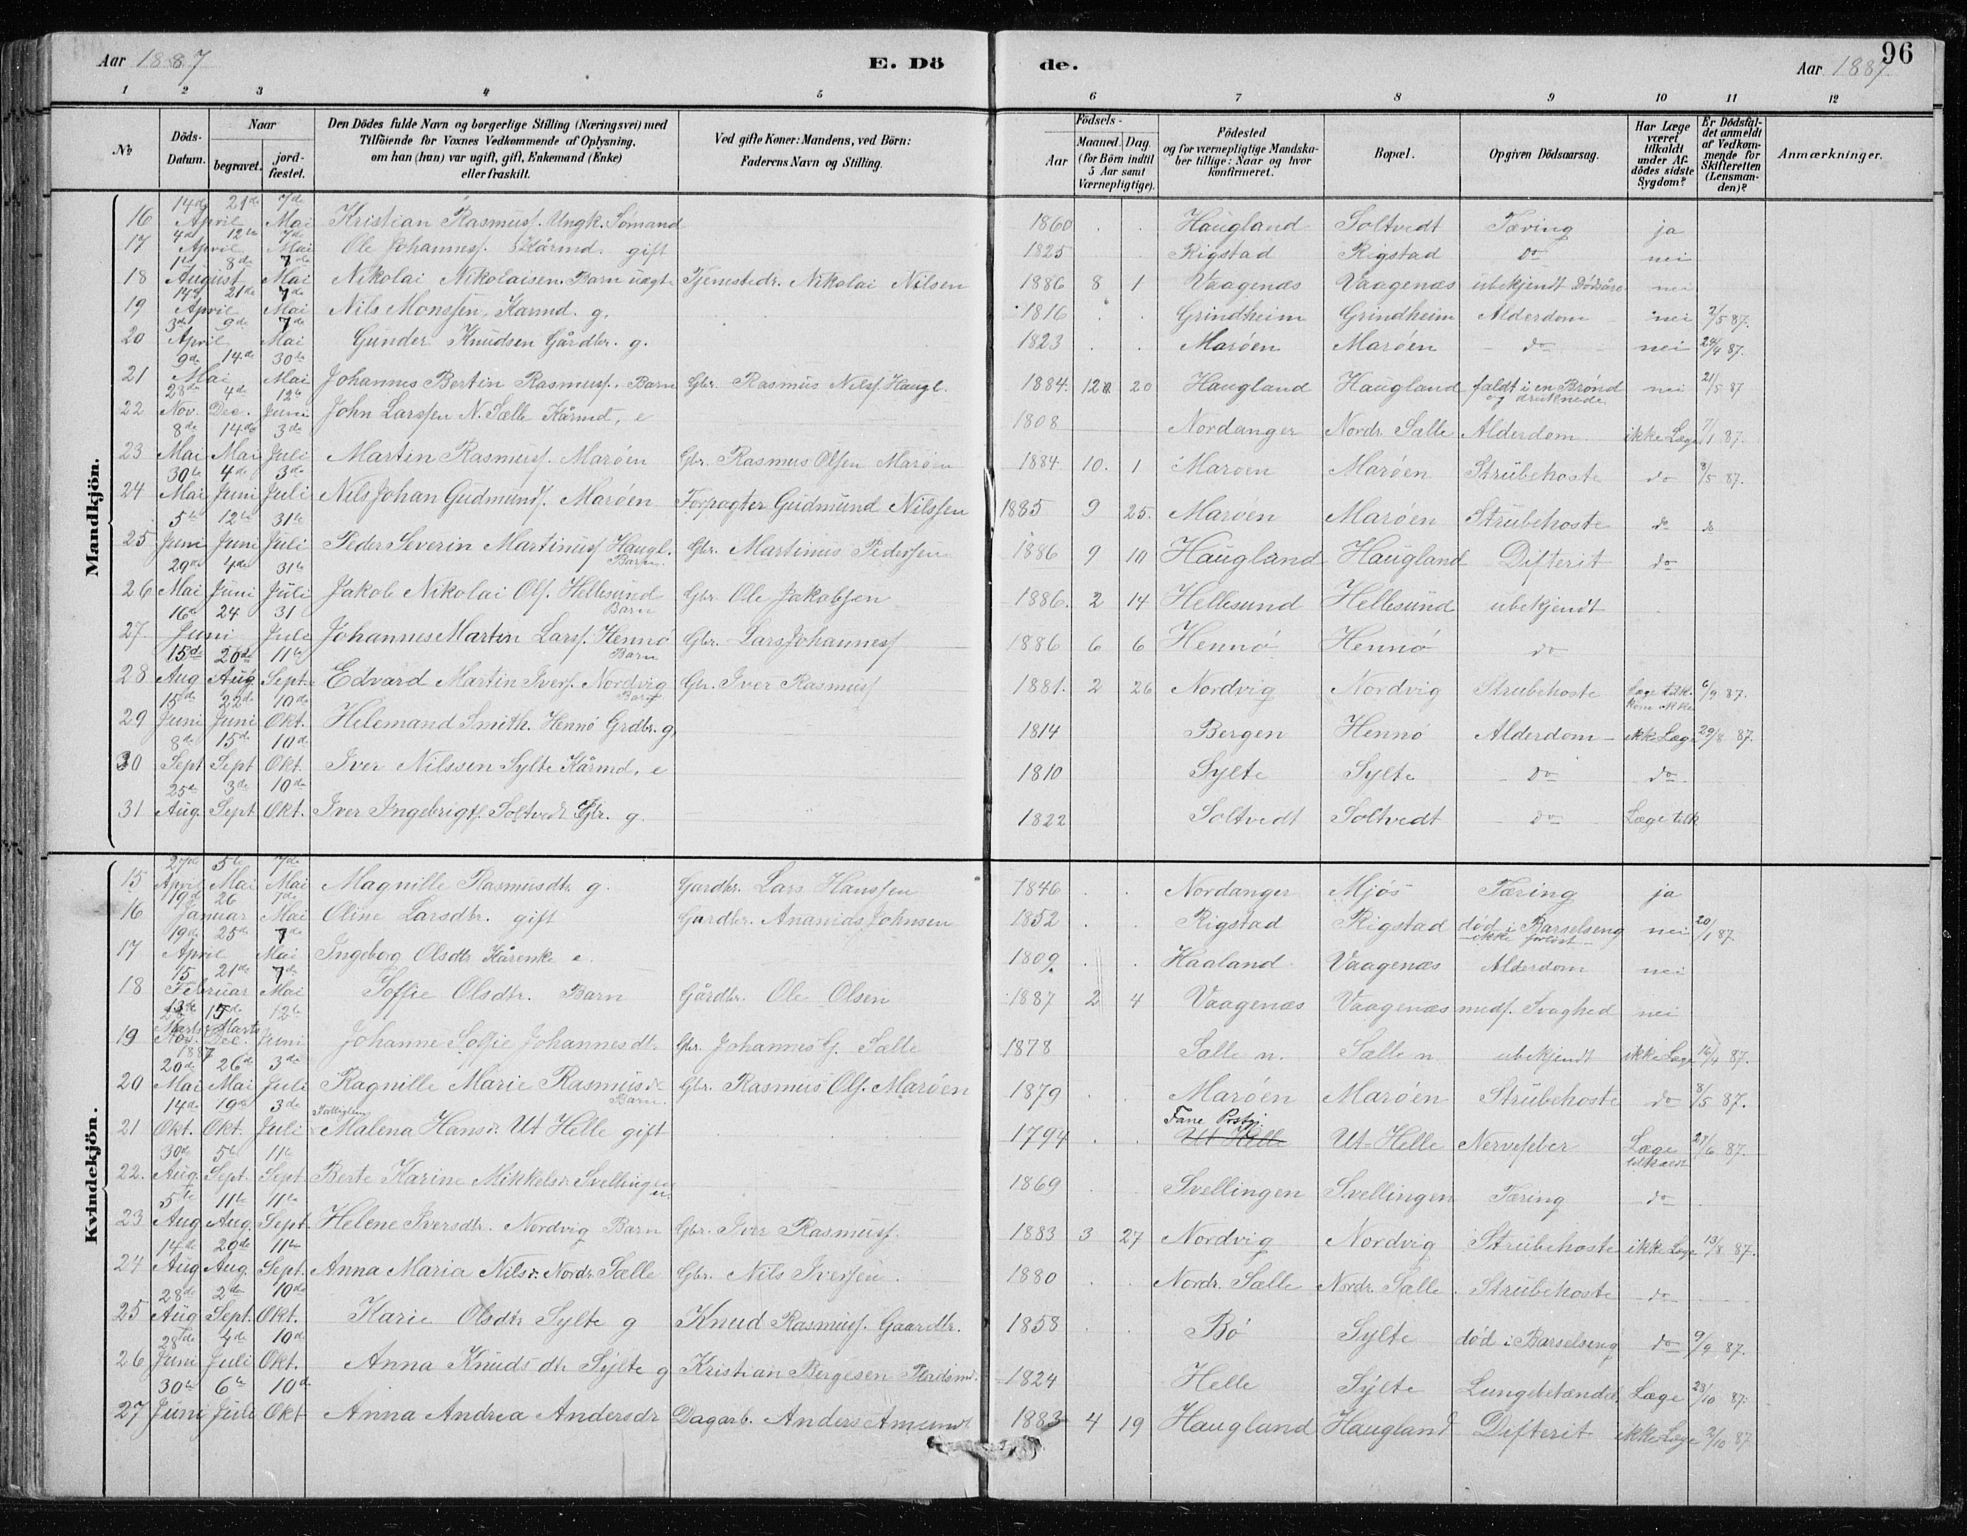 Aar 1887 E. Dö de. Aar 1887. 96
1 2 3 4 5 6 7 8 9 10 11 12
No
Döds-Datum.
Naar
begravet.
jord-fæstet.
Den Dödes fulde Navn og borgerlige Stilling (Næringsvei) med
Tilföiende for Voxnes Vedkommende af Oplysning,
om han (hun) var ugift, gift, Enkemand (Enke)
eller fraskilt.
Ved gifte Koner: Mandens, ved Börn:
Faderens Navn og Stilling.
Födsels-
Aar
Maaned. Dag.
(for Börn indtil
5 Aar samt
Værnepligtige).
Födested
og for værnepligtige Mandska-
ber tillige: Naar og hvor
konfirmeret.
Bopæl.
Opgiven Dödsaarsag.
Har Læge
været
tilkaldt
under Af-
dödes sidste
Sygdom?
Er Dödsfal-
det anmeldt
af Vedkom-
mende for
Skifteretten
(Lensman-
den)?
Anmærkninger.
Mandkjön.
16 14de April 21de 7de Mai Kristian Rasmuss. Ungk. Sömand 1860 Haugland Soltvedt Tæring ja
17 4de April 12te 7de Mai Ole Johanness. Kårmd. gift 1825 Rigstad Rigstad do nei
18 1ste August 8de 7de Mai Nikolai Nikolaisen Barn uægte Tjenestedr. Nikolai Nilsen 1886 8 1 Vaagenæs Vaagenæs ubekjendt Dødsårs. nei
19 14de April 21de 7de Mai Nils Monssen Karmd. g. 1816 Grindheim Grindheim Alderdom nei 2/5 87.
20 3de April 9de 7de Mai Gunder Knudsen Gårdbr. g. 1823 Marøen Marøen do nei 24/4 87.
21 9de Mai 14de 30te Mai Johannes Bertin Rasmuss. Barn Gbr. Rasmus Nilss. Haugl. 1884. 12 20 Haugland Haugland faldt i en Brønd og druknede nei 21/5 87
22 28de Nov. 4de Dec. 12te Juni John Larssen N. Sælle Kårmd. e 1808 Nordanger Nordr. Sælle Alderdom ikke Læge 7/1 87.
23 8de Mai 14de Mai 3de Juli Martin Rasmuss. Marøen Gbr. Rasmus Olsen Marøen 1884 10. 1 Marøen Marøen Strubehoste do 8/5 87.
24 30te Mai 4de Juni 3de Juli Nils Johan Gudmunds. Marøen Forpagter Gudmund Nilssen 1885 9 25. Marøen Marøen Strubehoste do do
25 5te Juni 12te Juni 31te Juli Peder Severin Martinuss. Haugl. Barn. Gbr. Martinus Pedersen 1886 9 10 Haugland Haugland Difterit do
26 29de Mai 4de Juni 31te Juli Jakob Nikolai Ols. Hellesund Barn Gbr. Ole Jakobsen 1886. 2 14 Hellesund Hellesund ubekjendt
27 16de Juni 24 31 Juli Johannes Martin Larss. Hennö Barn Gbr. Lars Johanness 1886 6 6 Hennö Hennö do
28 15de Aug 20de Aug. 11te Sept. Edvard Martin Ivers. Nordvig Barn Gbr. Iver Rasmuss 1881. 2 26 Nordvig Nordvig Strubehoste Læge tilk. kom ikke 6/9 87.
29 15de Juni 22de Juni 10de Okt. Helemand Smith. Hennö Grdbr. g. 1814 Bergen Hennö Alderdom ikke Læge 29/8 87.
30 8de Sept 15de Sept 10de Okt. Iver Nilssen Sylte Kårmd. e 1810 Sylte Sylte do do
31 25de Aug. 3de Sept 10de Okt. Iver Ingebrigts. Soltvedt Gbr. g. 1822 Soltvedt Soltvedt do Læge tilk
Kvindekjön.
15 27de April 5te Mai 7de Mai Magnille Rasmusdtr g. Gardbr. Lars Hanssen 1846 Nordanger Mjös Tæring ja
16 19de Januar 26 1ste Mai Oline Larsdtr. gift Gardbr. Ananias Johnsen 1852 Rigstad Rigstad død i Barselseng ikke forløst nei 20/1 87.
17 19de April 25de 7de Mai Ingeborg Olsdtr Kårenke e. 1809 Haaland Vaagenæs Alderdom nei
18 15 Februar 21de 7de Mai Soffie Olsdtr. Barn Gårdbr. Ole Olsen 1887 2 4 Vaagenæs Vaagenæs medf. Svaghed nei
19 Nov. Dec. 12te Juni Johanne Soffie Johannesdt. Gbr. Johannes G. Sælle 1878 Sælle n. Sælle n ubekjendt ikke Læge 16/4 87.
20 20de Mai 26de Mai 3de Juli Ragnille Marie Rasmusdr Barn. Gbr. Rasmus Ols. Marøen 1879 Marøen Marøen Strubehoste do 8/5 87.
21 14de Okt. 19de Okt. 3de Juli Malena Hansdr. Ut Helle gift 1794 Fane Prstj. Ut Helle Ut. Helle Nervefeber Læge tilkaldt 27/6 87.
22. 30te Aug. 5te Sept 11te Sept. Berte Karine Mikkelsdr. Svellingen 1869 Svellingen Svellingen Tæring do
23 5te Aug 11te Aug. 11te Sept. Helene Iversdtr. Nordvig Barn Gbr. Iver Rasmuss. 1883 3 27 Nordvig Nordvig Strubehoste ikke Læge 13/8 87.
24 14de Aug 20de Aug. 11te Sept. Anna Maria Nilsdr. Nordr. Sælle Gbr. Nils Iversen. 1880 Nordr. Sælle Nordr. Sælle Strubehoste do
25 28de Aug 2de Sept. 10de Okt. Karie Olsdtr Sylte g Knud Rasmuss. Gaardbr. 1858 Bö Sylte død i Barselseng do 9/9 87.
26 28de Juni 4de Juli 10de Okt. Anna Knudsdtr Sylte g Kristian Bergesen 1824 Helle Sylte Lungebetændel. Læge 23/10 87.
27 30te Juni 6te Juli 10de Okt Anna Andrea Andersdr Dagarb. Anders Amunds 1883 4 19 Haugland Haugland Difterit ikke Læge 2/10 87